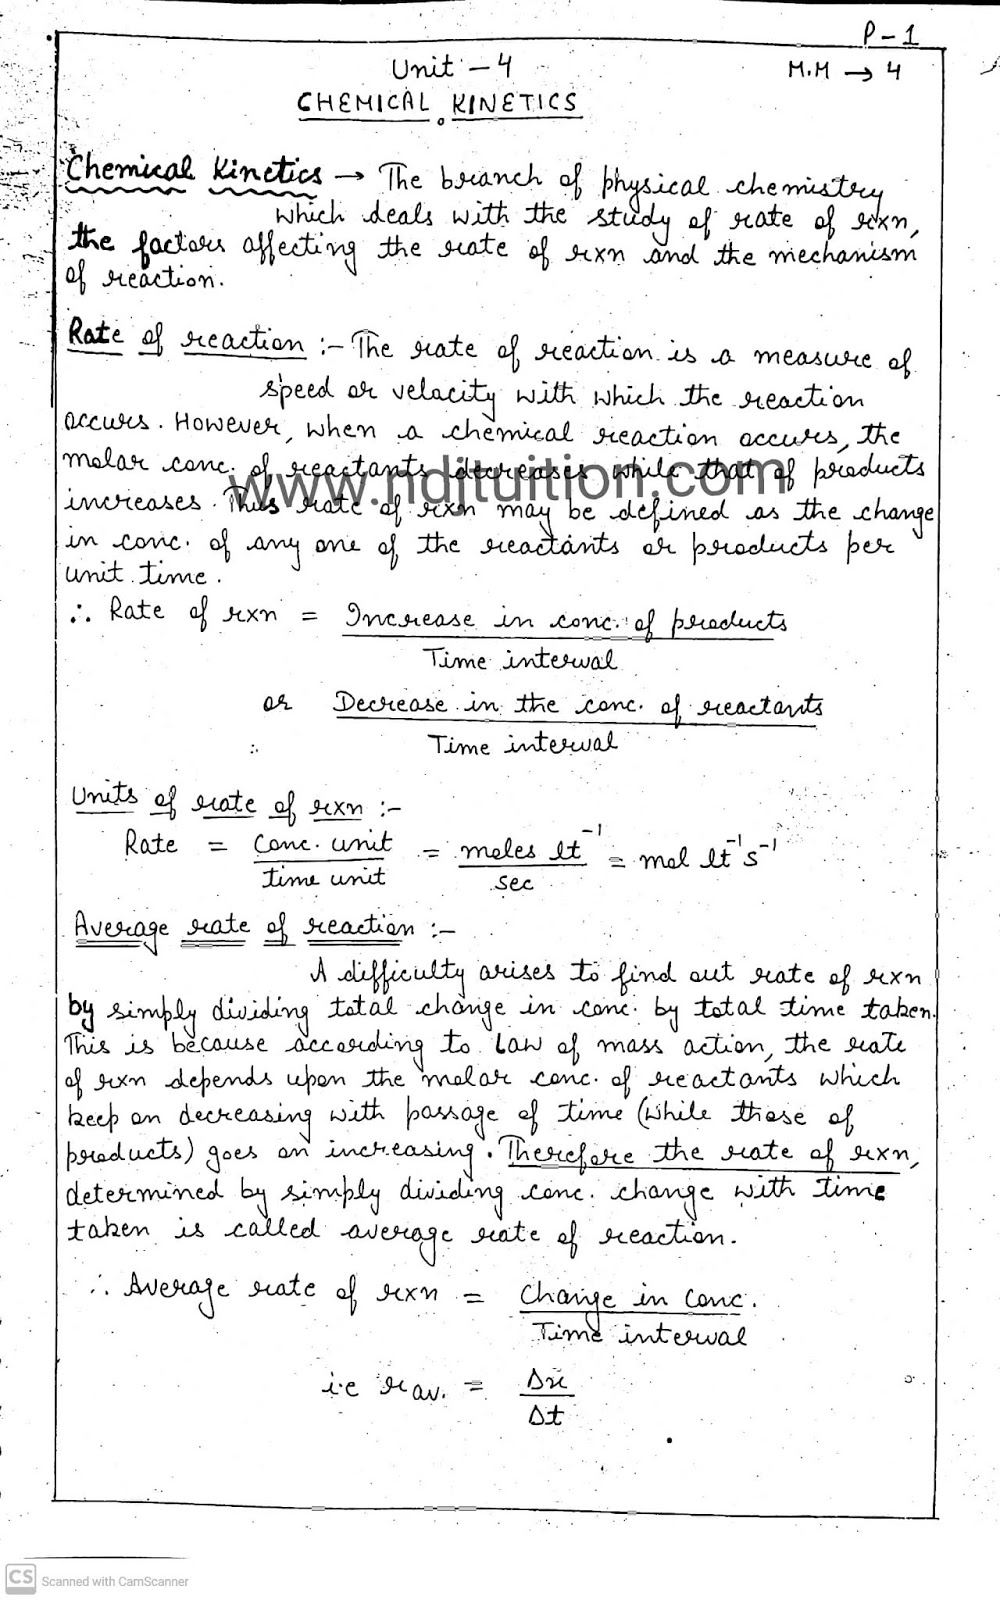 P-1
Unit - 4
M.M → 4
CHEMICAL KINETICS
Chemical Kinetics → The branch of physical chemistry
which deals with the study of rate of rxn,
the factors affecting the rate of rxn and the mechanism
of reaction.
Rate of reaction :- The rate of reaction is a measure of
speed or velocity with which the reaction
occurs. However, when a chemical reaction occurs, the
molar conc. of reactants decreases while that of products
www.nditution.com
increases. Thus rate of rxn may be defined as the change
in conc. of any one of the reactants or products per
unit time.
∴ Rate of rxn = Increase in conc. of products
Time interval
or Decrease in the conc. of reactants
Time interval
Units of rate of rxn :-
Rate = Conc. unit / time unit = moles lt⁻¹ / sec = mol lt⁻¹ s⁻¹
Average rate of reaction :-
A difficulty arises to find out rate of rxn
by simply dividing total change in conc. by total time taken.
This is because according to Law of mass action, the rate
of rxn depends upon the molar conc. of reactants which
keep on decreasing with passage of time (while those of
products) goes on increasing. Therefore the rate of rxn,
determined by simply dividing conc. change with time
taken is called average rate of reaction.
∴ Average rate of rxn = Change in conc.
Time interval
i.e r av. = Δx
Δt
CS Scanned with CamScanner